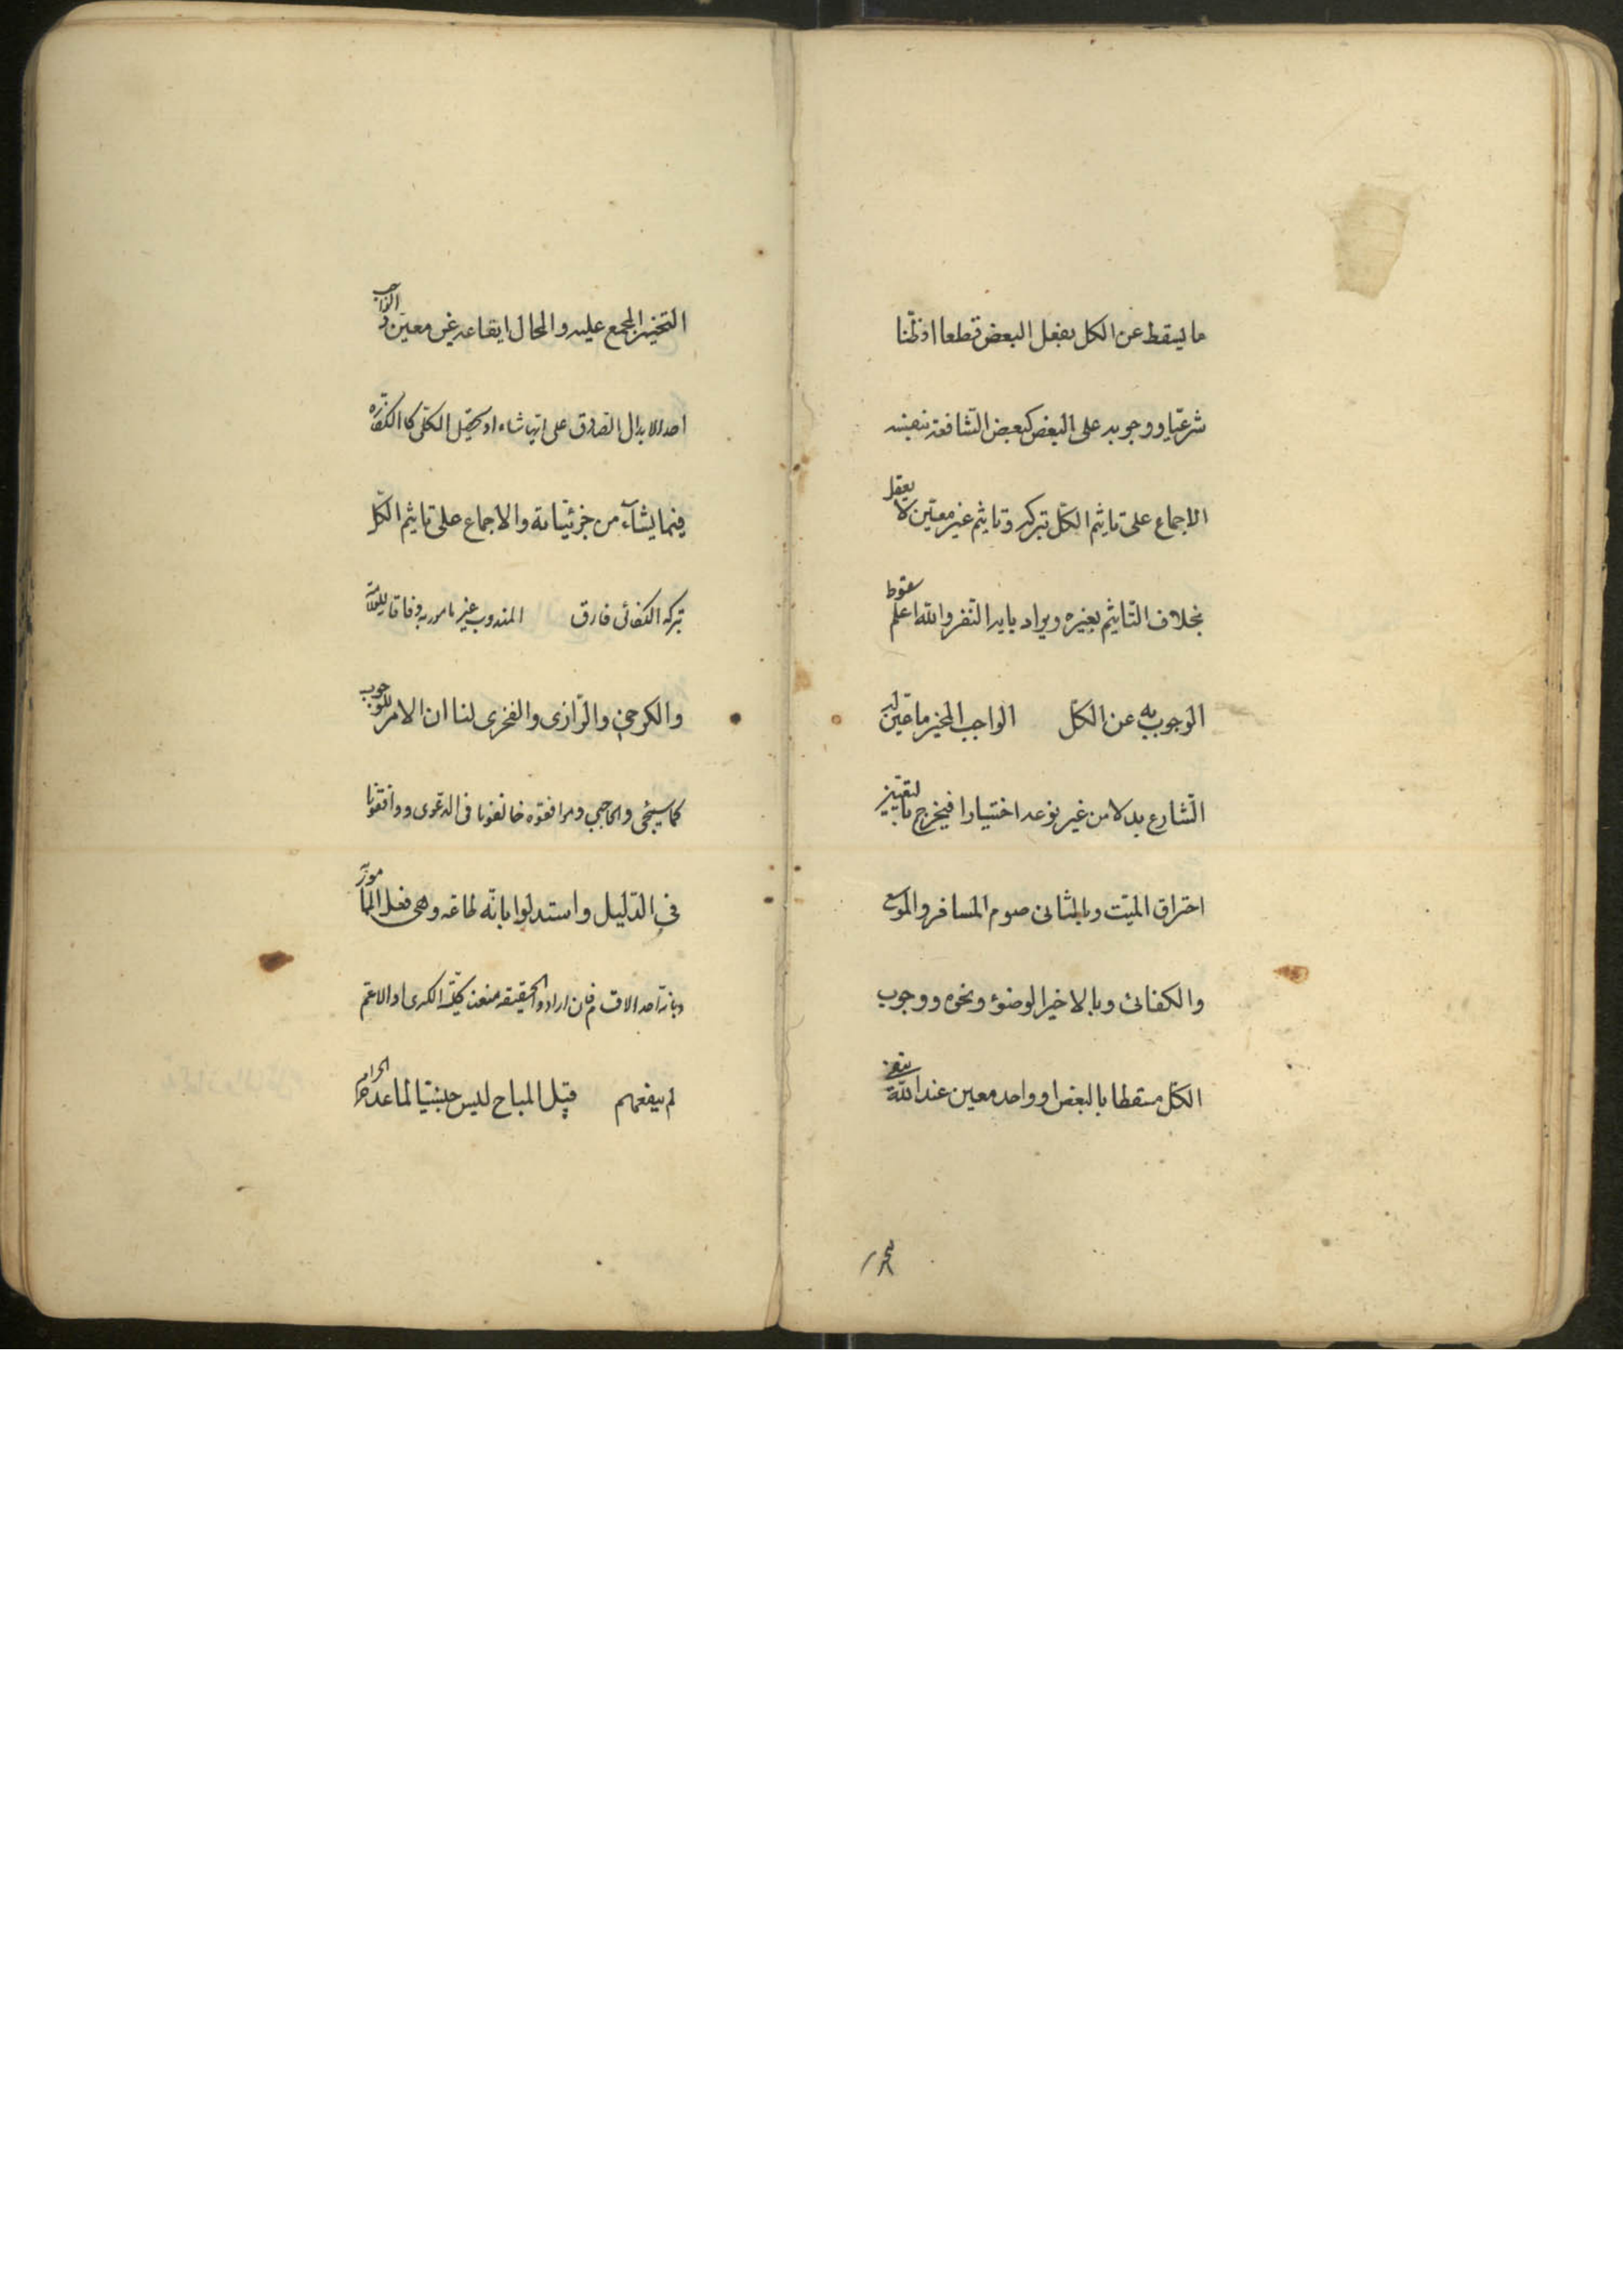 ما يسقط عن الكل بفعل البعض قطعا او ظنّا
شرعيّا ووجوبه على البعض كبعض الشّافعة ينفيه
الاجماع على تاثيم الكلّ بتركه وتاثيم غير معيّن لا يعقل
بخلاف التّاثيم بغيره ويراد باية النّفر والله اعلم سقوط
الوجوب به عن الكلّ الواجب المخيّر ما عيّن له
الشّارع بدلا من غير نوعه اختيارا فيخرج بالتقييز
احتراق الميّت وبالثانى صوم المسافر والموسع
والكفائى وبالاخير الوضوء ونحوه ووجوب
الكلّ مسقطا بالبعض او واحد معين عند الله ينفيه
لتخير
التخيير المجمع عليه والمحال ايقاعه غير معيّن والواجب
احد الابدال الصادق على ايها شاء او تحصيل الكلّى كالكفّاره
فيما يشآء من جزئيّاته والاجماع على تاثيم الكلّ
بتركه الكفائى فارق المندوب غير مامور به وفاقا للعلّامة
والكرخى والرّازى والفخرى لنا ان الامر للوجوب
كما سيجئ والحاجبى وموافقوه خالفونا فى الدعوى ووافقونا
فى الدّليل واستدلوا بانّه طاعه وهى فعل المامور به
وبانه احد الاقسام فان ارادوا الحقيقه منعت كليّة الكبرى او الاعم
لم ينفعهم قيل المباح ليس جنسا لما عدا الحرام